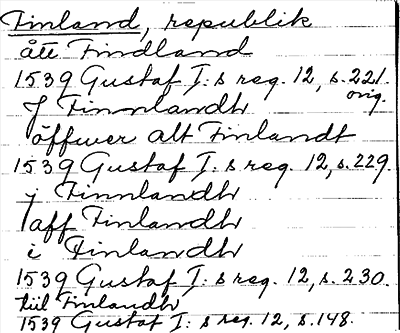 Finland, republik
ått Findland
1539 Gustaf I: s reg. 12, s. 221.
orig.
J Finnlandh
öffwer alt Finlandt
1539 Gustaf I: s reg. 12, s. 229.
j Finnlandh
aff Finlandh
i Finlandh
1539 Gustaf I: s reg. 12, s. 230.
tiil Finlandh
1539 Gustaf I: s reg. 12, s. 148.